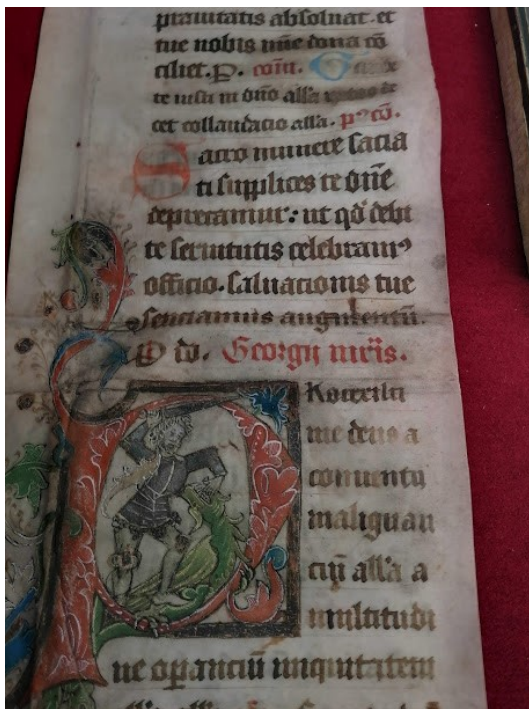 prauitatis absoluat. et
tue nobis nūe dona cō
ciliet. P. com̄.
te iusti in dn̄o alla
cet collaudacio alla. p⁹ cō.
Sacro munere sacia
ti supplices te dn̄e
deprecamur: ut qd̄ debi
te seruitutis celebram⁹
officio. saluacionis tue
senciamus augmentū.
Georgij mr̄is.
Protexisti
me deus a
conuentu
malignan
ciū alla a
multitudi
ne operanciū iniquitatem